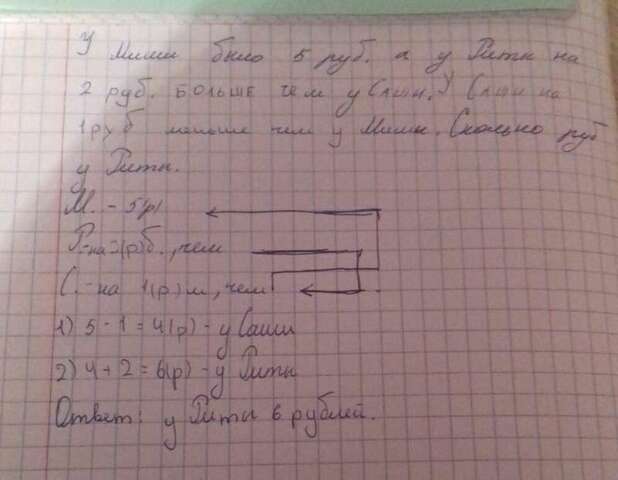 У Миши было 5 руб. а у Риты на
2 руб. больше чем у Саши. У Саши на
1 руб меньше чем у Миши. Сколько руб
у Риты.
М. - 5(р)
Р.-на 2(р)б., чем
С.-на 1(р)м, чем
1) 5 - 1 = 4(р) - у Саши
2) 4 + 2 = 6(р) - у Риты
Ответ: у Риты 6 рублей.